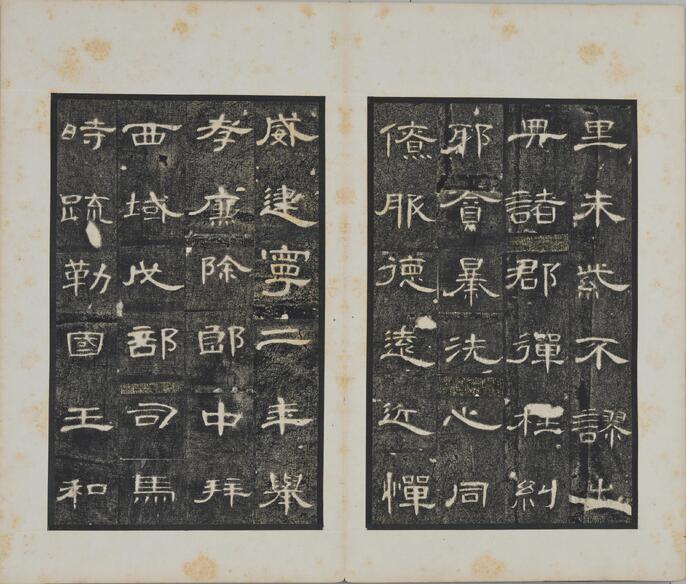 里朱紫不謬出
典諸郡彈枉糾
邪貪暴洗心同
僚服德遠近憚
威建寧二年舉
孝廉除郎中拜
西域戊部司馬
時疏勒國王和